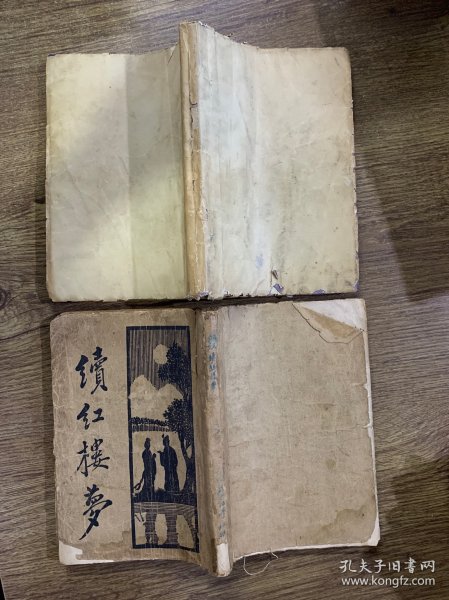 續红楼夢
孔夫子旧书网
www.kongfz.com